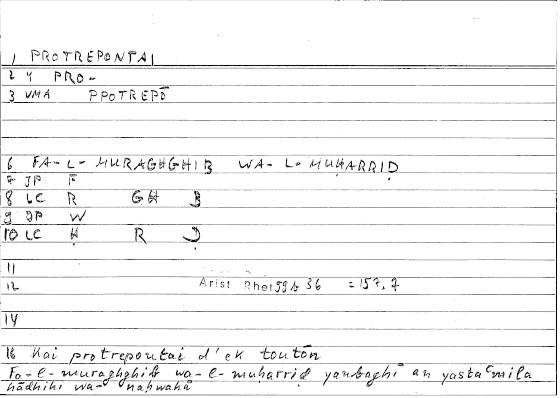 1 PROTREPONTAI
2 Y PRO-
3 VMA PPOTREPŌ
6 FA-L-MURAGHGHIB WA-L-MUḤARRIḌ
7 JP F
8 LC R GH B
9 JP W
10 LC Ḥ R Ḍ
11
12 Arist Rhet 99b 36 = 157,7
14
16 Kai protrepontai d'ek toutōn
Fa-l-muraghghib wa-l-muḥarriḍ yanbaghī an yastaʿmila
hādhihi wa-naḥwahā